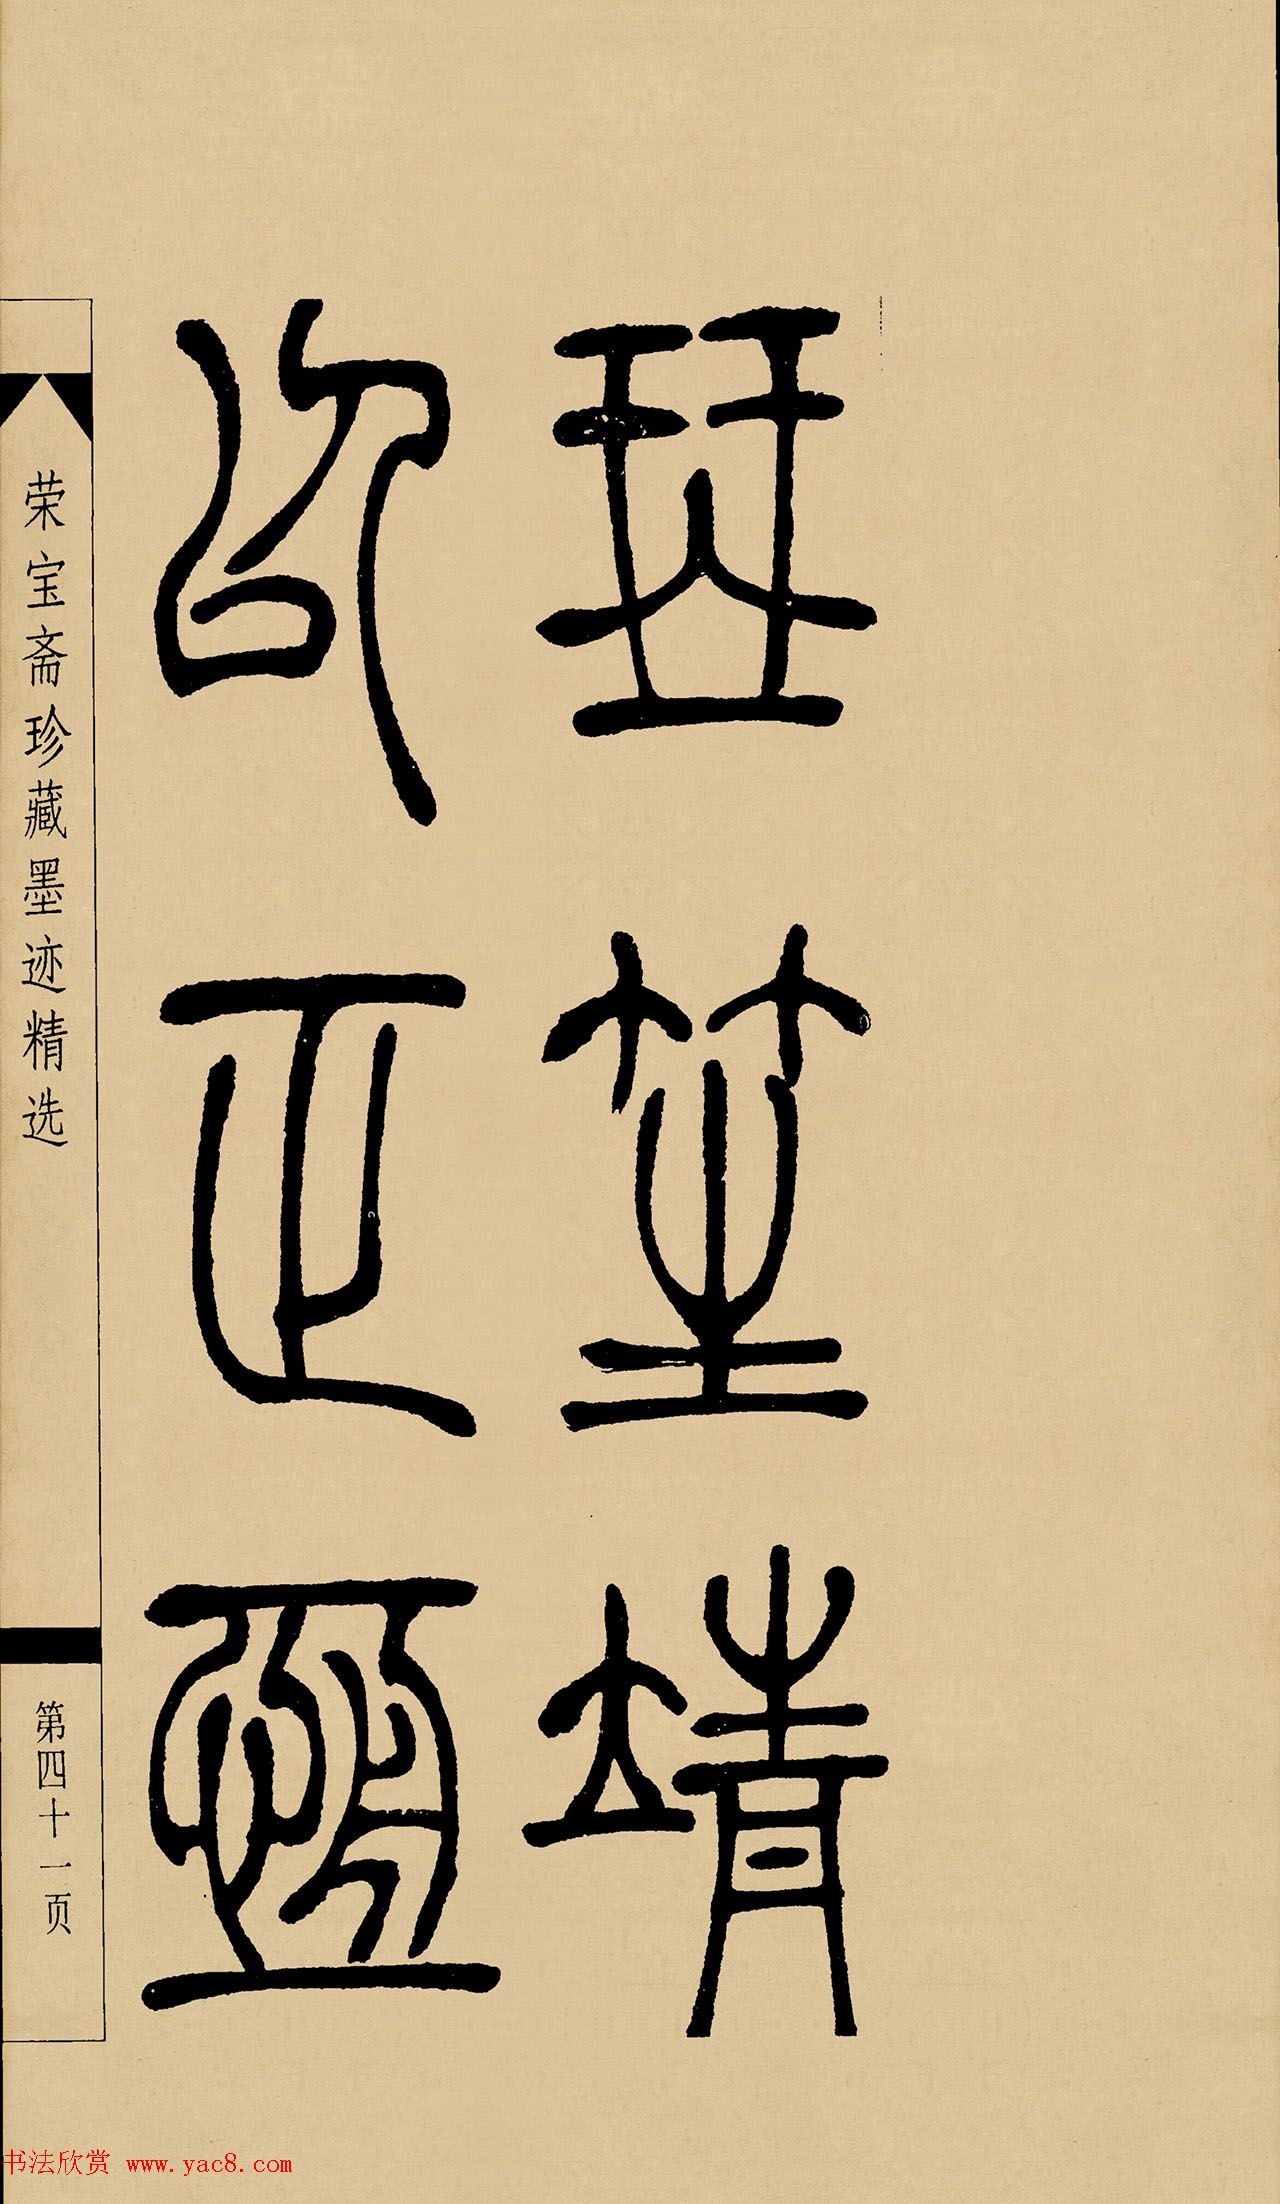 琴笙靖
以正恆
荣宝斋珍藏墨迹精选
第四十一页
书法欣赏 www.yac8.com